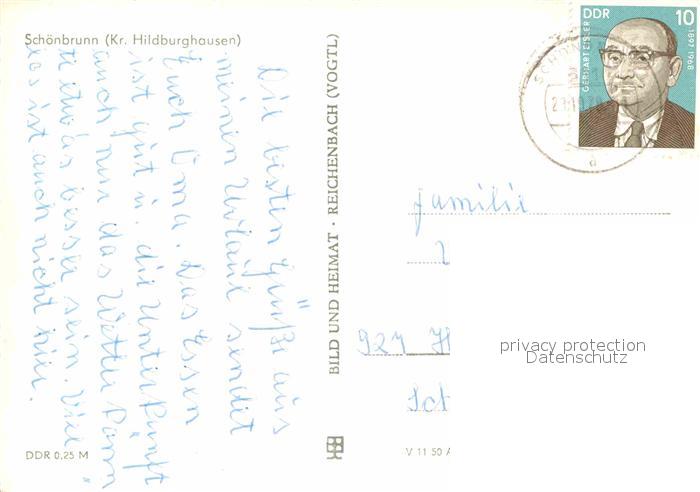 Schönbrunn (Kr. Hildburghausen)
Die besten Grüße aus
meinen Urlaub sendet
Euch Oma. Das Essen
ist gut u. die Unterkunft
auch nur das Wetter kann
etwas besser sein. Viel
los ist auch nicht hier.
DDR 0,25 M
BILD UND HEIMAT · REICHENBACH (VOGTL)
V 11 50 A
DDR 10
GERHART EISLER 1897-1968
Familie
privacy protection
Datenschutz